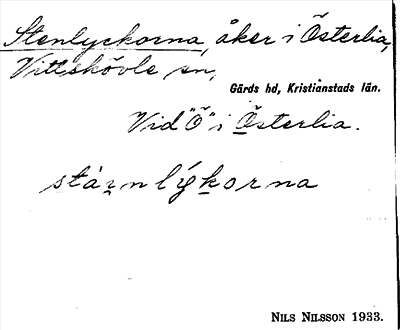 Stenlyckorna, åker i Österlia,
Vittskövle sn,
Gärds hd, Kristianstads län.
Vid "Ö" i Österlia.
stáı̨nlýkorna
NILS NILSSON 1933.